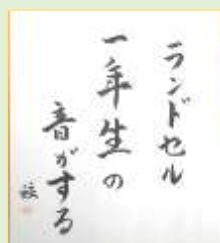 ランドセル
一年生の
音がする